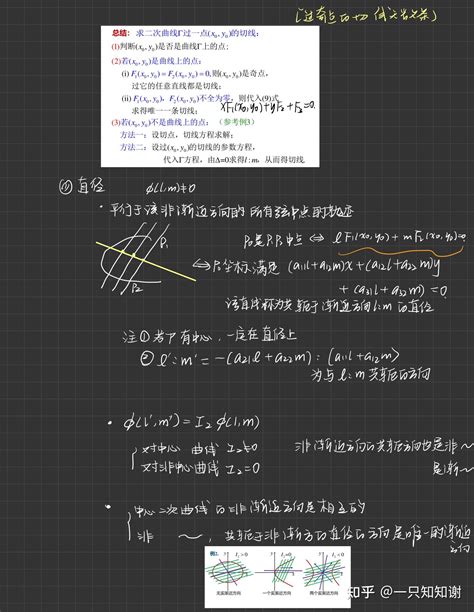 (过奇点的切线有无穷条)
总结: 求二次曲线Γ过一点(x₀, y₀)的切线:
(1)判断(x₀, y₀)是否是曲线Γ上的点;
(2)若(x₀, y₀)是曲线上的点:
(i) F₁(x₀, y₀) = F₂(x₀, y₀) = 0, 则(x₀, y₀)是奇点,
过它的任意直线都是切线;
(ii) F₁(x₀, y₀), F₂(x₀, y₀)不全为零, 则代入(9)式
求得唯一一条切线; xF₁(x₀, y₀)+yF₂+F₃=0.
(3)若(x₀, y₀)不是曲线上的点: (参考例3)
方法一: 设切点, 切线方程求解;
方法二: 设过(x₀, y₀)的切线的参数方程,
代入Γ方程, 由Δ=0求得l : m, 从而得切线.
直径 φ(l,m)≠0
· 平行于该非渐近方向的所有弦中点的轨迹
P₁
P₂
P₀是P₁P₂中点 ⇔ lF₁(x₀,y₀)+mF₂(x₀,y₀)=0
⇔ P₀坐标满足 (a₁₁l+a₁₂m)x+(a₁₂l+a₂₂m)y
+(a₃₁l+a₃₂m)=0
该直线称为共轭于渐近方向l:m的直径
注① 若Γ有中心,一定在直径上
② l':m'=-(a₂₁l+a₂₂m):(a₁₁l+a₁₂m)
为与l:m共轭的方向
· φ(l',m')=I₂φ(l,m)
对中心曲线 I₂≠0 非渐近方向的共轭方向也是非~
对非中心曲线 I₂=0 是渐~
· 中心二次曲线的非渐近方向是相互的
非 ~, 共轭于非渐方的直径的方向是唯一的渐近方向
例2.
I₂>0
I₂=0
I₂<0
无实渐近方向
一个实渐近方向
两个实渐近方向
知乎 @一只知知谢